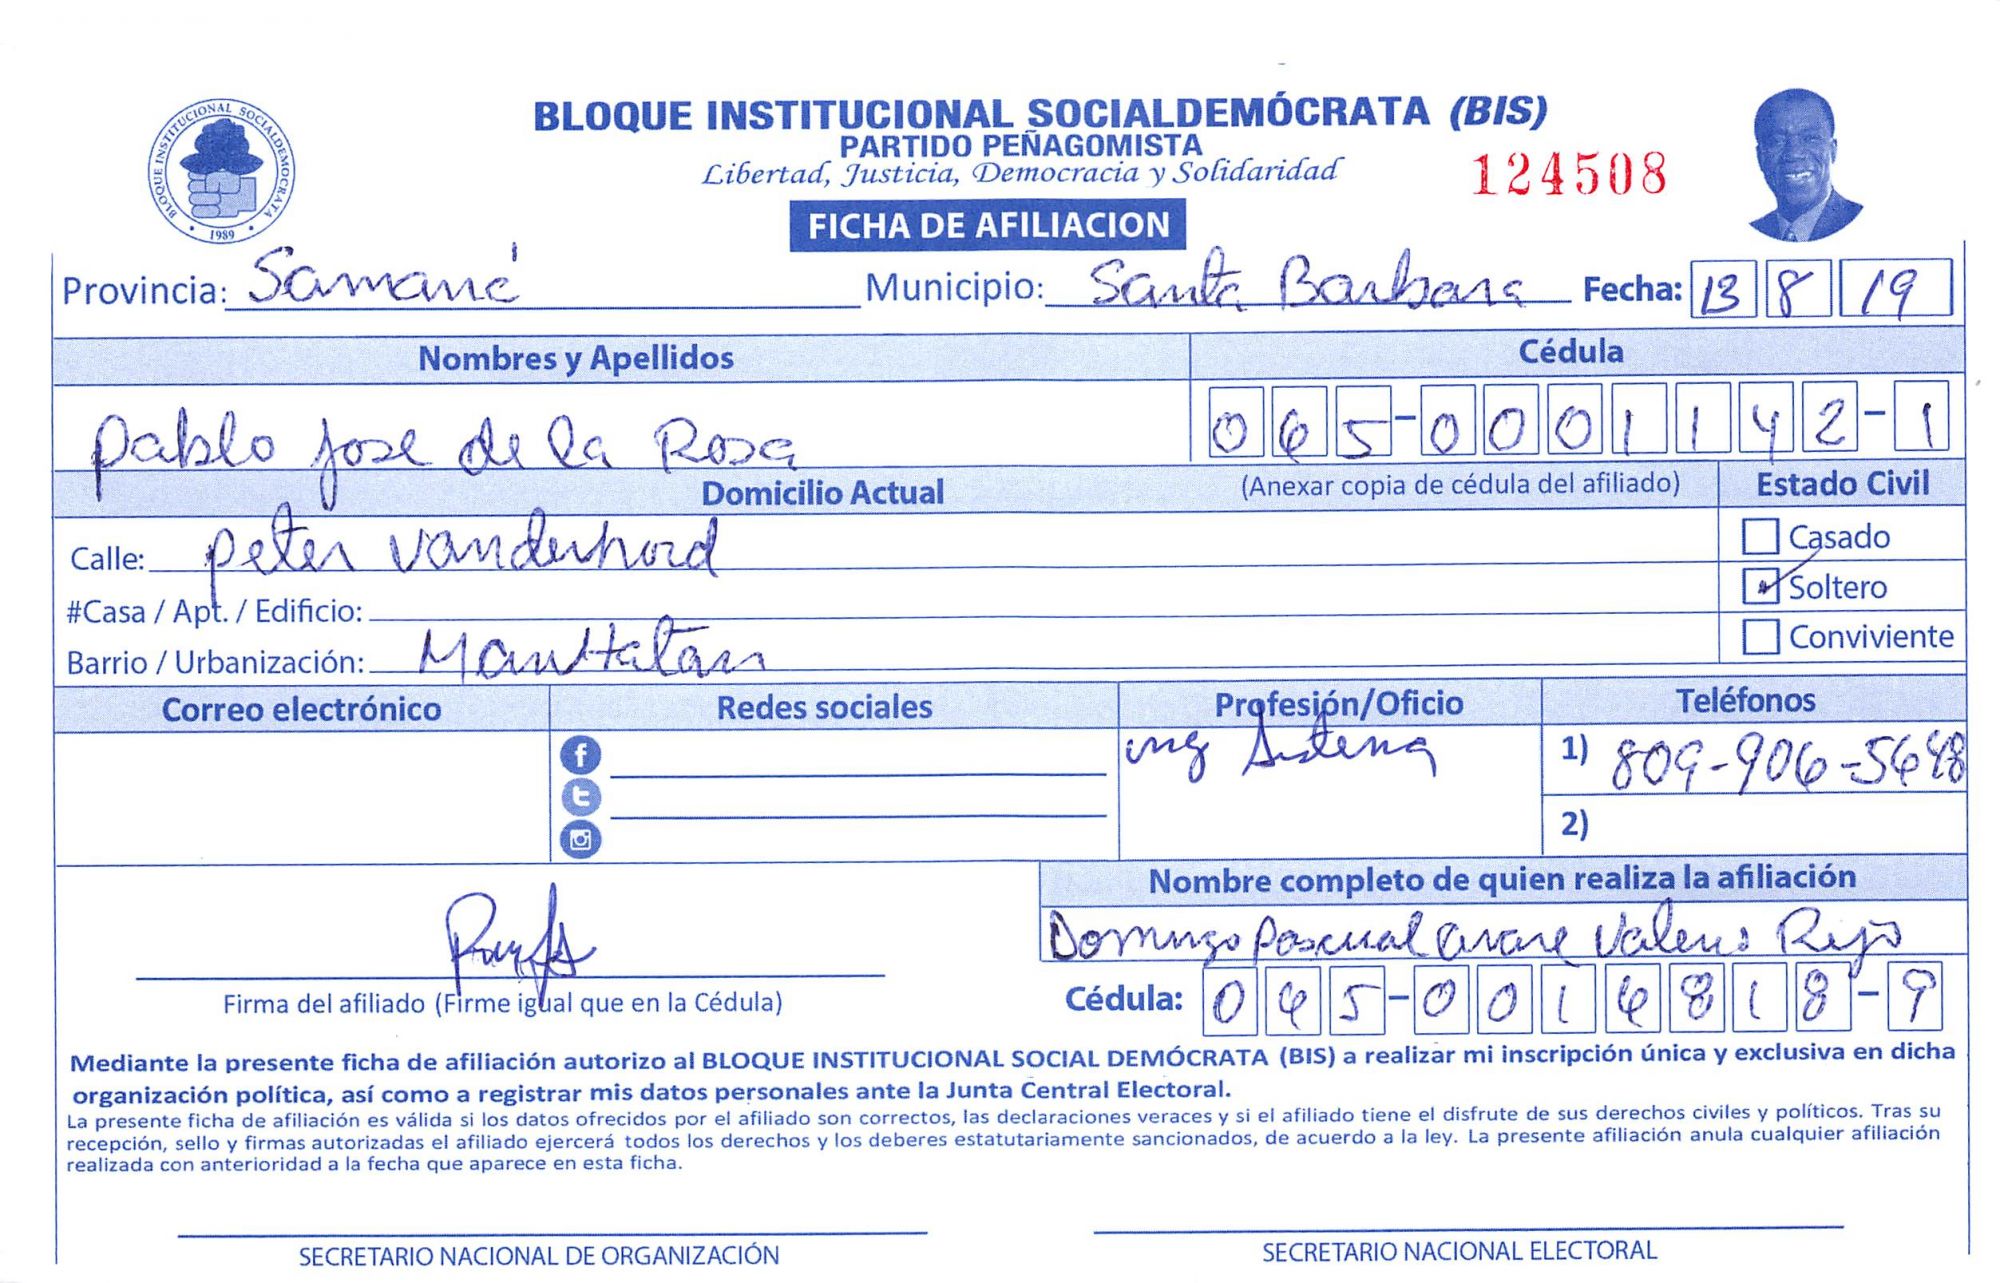 BLOQUE INSTITUCIONAL SOCIALDEMÓCRATA (BIS)
PARTIDO PEÑAGOMISTA
Libertad, Justicia, Democracia y Solidaridad
124508
BLOQUE INSTITUCIONAL SOCIALDEMOCRATA
1989
FICHA DE AFILIACION
Provincia: Samaná Municipio: Santa Barbara Fecha: 13 8 19
Nombres y Apellidos Cédula
Pablo Jose de la Rosa 065-0001142-1
Domicilio Actual (Anexar copia de cédula del afiliado) Estado Civil
Calle: Peter Vanderhord Casado
#Casa / Apt. / Edificio: Soltero
Barrio / Urbanización: Manhatan Conviviente
Correo electrónico Redes sociales Profesión/Oficio Teléfonos
ing Sistema 1) 809-906-5648
2)
Nombre completo de quien realiza la afiliación
Domingo Pascual Valerio Rijo
Firma del afiliado (Firme igual que en la Cédula) Cédula: 065-0016818-9
Mediante la presente ficha de afiliación autorizo al BLOQUE INSTITUCIONAL SOCIAL DEMÓCRATA (BIS) a realizar mi inscripción única y exclusiva en dicha
organización política, así como a registrar mis datos personales ante la Junta Central Electoral.
La presente ficha de afiliación es válida si los datos ofrecidos por el afiliado son correctos, las declaraciones veraces y si el afiliado tiene el disfrute de sus derechos civiles y políticos. Tras su
recepción, sello y firmas autorizadas el afiliado ejercerá todos los derechos y los deberes estatutariamente sancionados, de acuerdo a la ley. La presente afiliación anula cualquier afiliación
realizada con anterioridad a la fecha que aparece en esta ficha.
SECRETARIO NACIONAL DE ORGANIZACIÓN SECRETARIO NACIONAL ELECTORAL